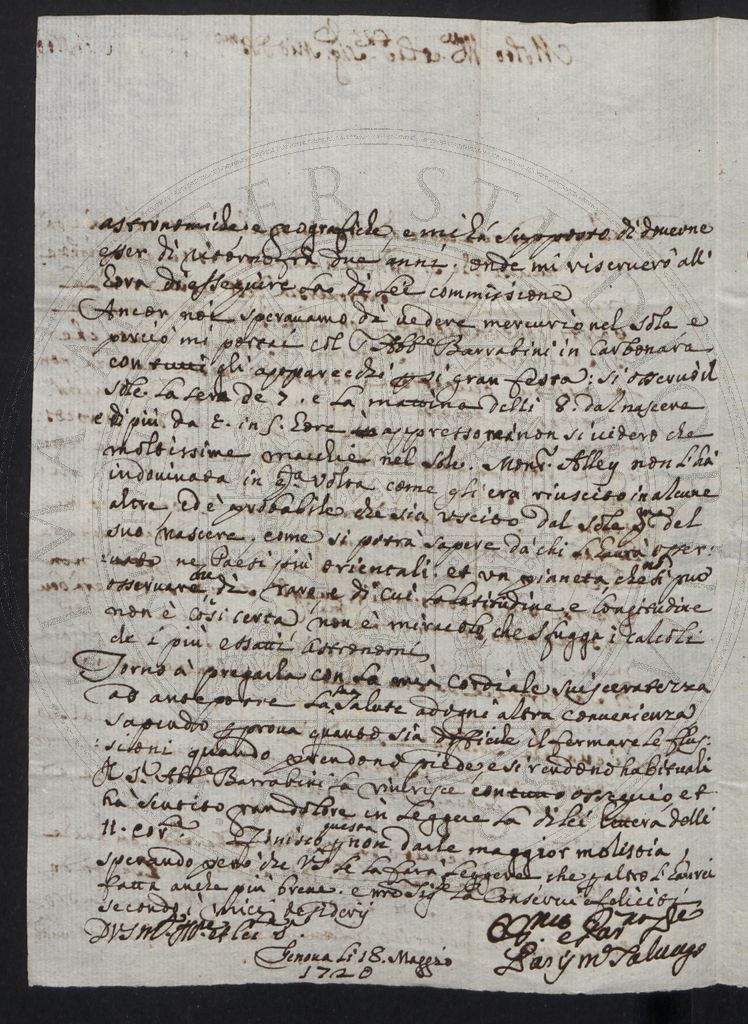 astronomiche e geografiche, e mi há supposto di doverne
esser di ritorno frà due anni. onde mi riserverò all'
hora di esseguire la di Lei commissione
Ancor noi speravamo di vedere mercurio nel Sole e
perciò mi portai col S. Abbe Barrabini in Carbonara
con tutti gli apparecchi p si gran festa; si osservò il
sole la sera de 7. e la mattina delli 8. dal nascere
e di più da in s. hore appresso mà non si videro che
moltissime macchie nel sole. Mons. Alley non l'hà
indovinata in qta volta come gli era riuscito in alcune
altre ed è probabile che sia uscito dal sole pma del
suo nascere. come si potrà sapere da chi l'haurà osser:
:uato ne Paesi più orientali. et un pianeta che non si può
osservare che di rare, e di cui la latitudine e longitudine
non è così certa non è miracolo, che sfugga i calcoli
de i più esatti Astronomi
Torno à pregarla con la mia cordiale suisceratezza
ad anteporre la sua salute ad ogni altra convenienza
sapendo p prova quanto sia difficile il fermare le flus:
:sioni quando prendono piede, e si rendono habituali
Il S. Abbe Barrabini la riverisce con tutto ossequio et
hà sentito gran dolore in leggere la di lei lettera delli
11. corte Finisco questa p non darle maggior molistia,
sperando però che VS se la farà leggere, che p altro l'haurei
fatta anche più breue. e nro Sigre la conservi e feliciti
secondo i miei desiderij
DVS Mto Illre et
Genova li 18. Maggio
1720
Salvago